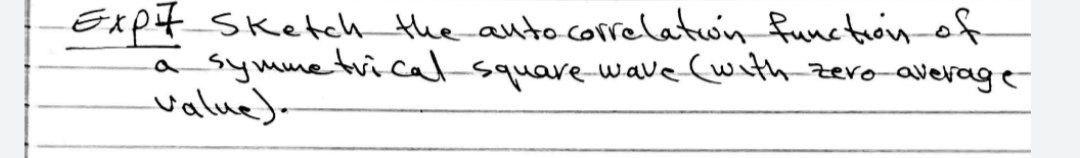 Exp7 Sketch the autocorrelation function of
a symmetrical square wave (with zero average
value).